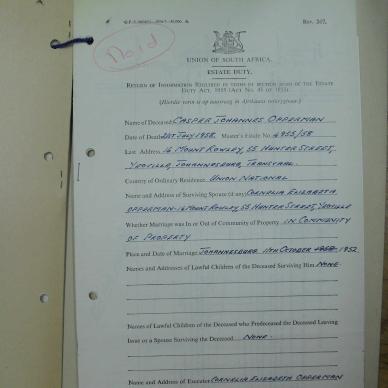 Rev. 267.
Paid
UNION OF SOUTH AFRICA.
ESTATE DUTY.
RETURN OF INFORMATION REQUIRED IN TERMS OF SECTION SEVEN OF THE ESTATE
DUTY ACT, 1955 (ACT No. 45 OF 1955).
(Hierdie vorm is op aanvraag in Afrikaans verkrygbaar.)
Name of Deceased CASPER JOHANNES OPPERMAN
Date of Death 21ST JULY 1958. Master's Estate No. 4955/58
Last Address 16 MOUNT ROWLEY, 55 HUNTER STREET,
YEOVILLE, JOHANNESBURG, TRANSVAAL.
Country of Ordinary Residence UNION NATIONAL
Name and Address of Surviving Spouse (if any) CORNELIA ELIZABETH
OPPERMAN-16 MOUNT ROWLEY, 55 HUNTER STREET, YEOVILLE
Whether Marriage was In or Out of Community of Property IN COMMUNITY
OF PROPERTY
Place and Date of Marriage JOHANNESBURG 11TH OCTOBER 1952
Names and Addresses of Lawful Children of the Deceased Surviving Him NONE
Names of Lawful Children of the Deceased who Predeceased the Deceased Leaving
Issue or a Spouse Surviving the Deceased NONE.
Name and Address of Executor CORNELIA ELIZABETH OPPERMAN